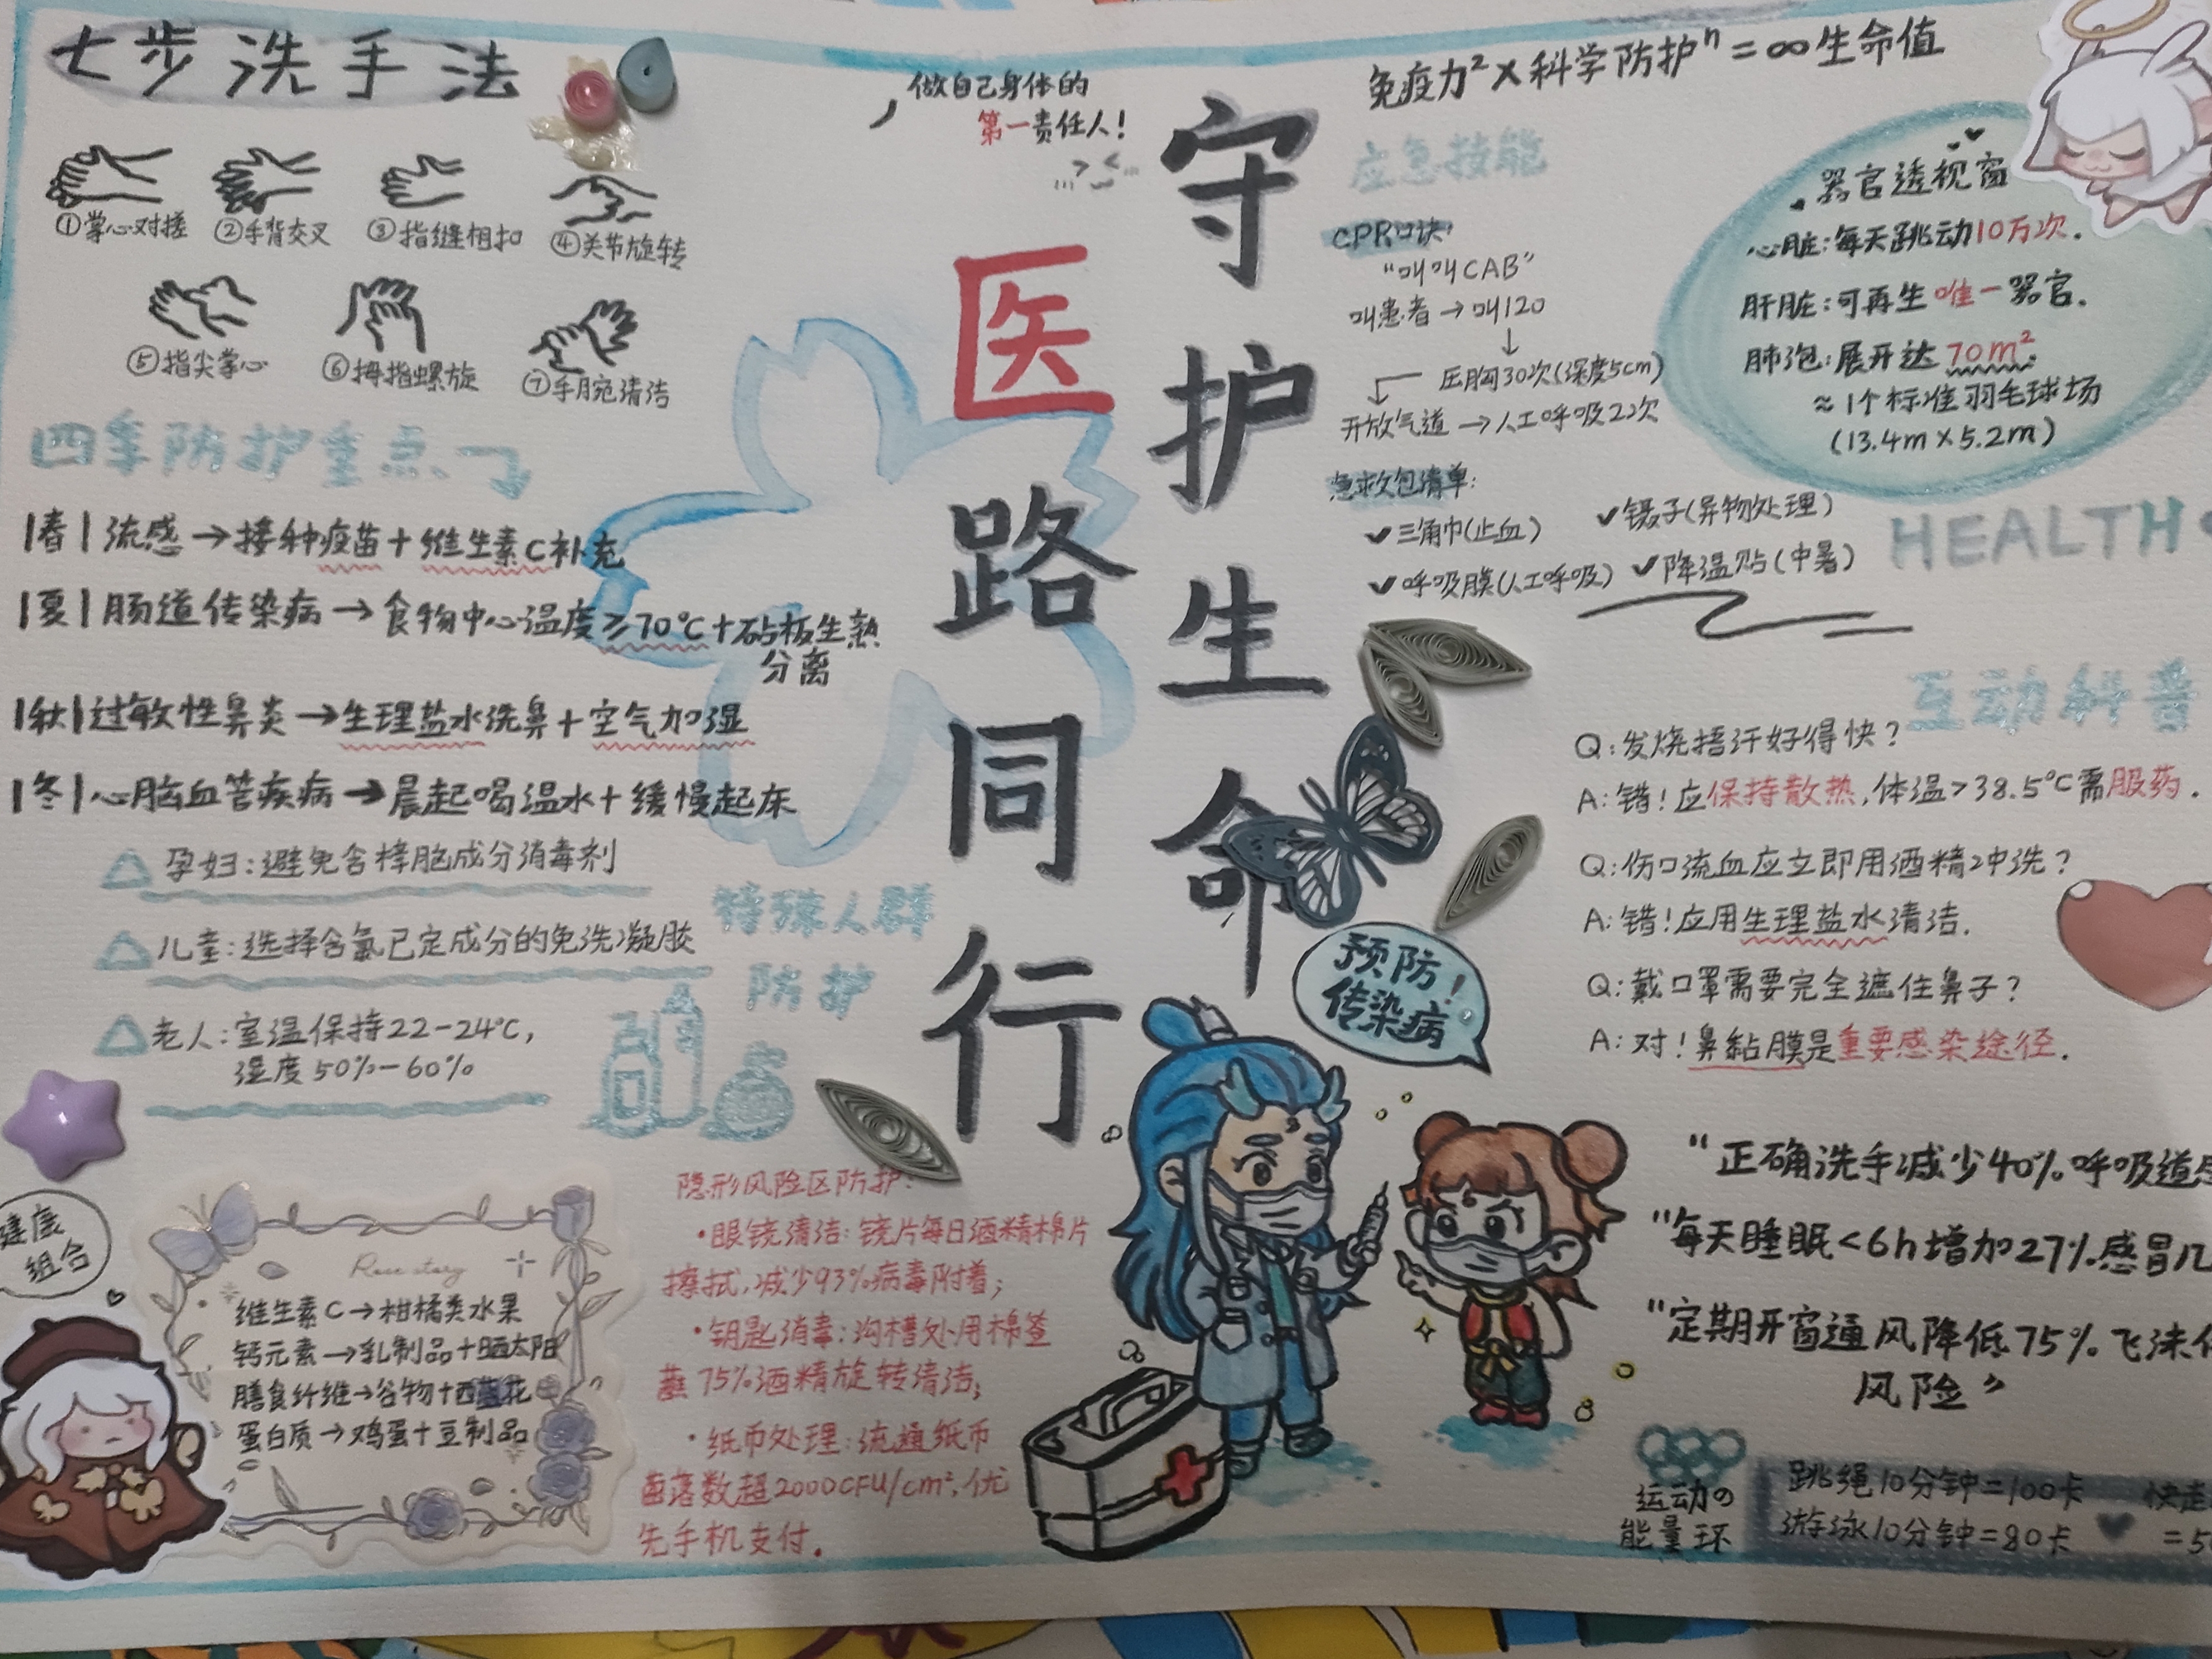 七步洗手法
①掌心对搓
②手背交叉
③指缝相扣
④关节旋转
⑤指尖掌心
⑥拇指螺旋
⑦手腕清洁
四季防护重点
|春|流感→接种疫苗+维生素C补充
|夏|肠道传染病→食物中心温度≥70℃+砧板生熟
分离
|秋|过敏性鼻炎→生理盐水洗鼻+空气加湿
|冬|心脑血管疾病→晨起喝温水+缓慢起床
特殊人群
防护
孕妇:避免含樟脑成分消毒剂
儿童:选择含氯己定成分的免洗凝胶
老人:室温保持22-24℃,
湿度50%-60%
健康
组合
Rose story
维生素C→柑橘类水果
钙元素→乳制品+晒太阳
膳食纤维→谷物+西蓝花
蛋白质→鸡蛋+豆制品
做自己身体的
第一责任人!
守护生命
医路同行
隐形风险区防护:
·眼镜清洁:镜片每日酒精棉片
擦拭,减少93%病毒附着;
·钥匙消毒:沟槽处用棉签
蘸75%酒精旋转清洁;
·纸币处理:流通纸币
菌落数超2000CFU/cm²,优
先手机支付.
预防!
传染病
免疫力²×科学防护ⁿ=∞生命值
应急技能
CPR口诀:
"叫叫CAB"
叫患者→叫120
↓
压胸30次(深度5cm)
开放气道→人工呼吸2次
急救包清单:
✓三角巾(止血)
✓镊子(异物处理)
✓呼吸膜(人工呼吸)
✓降温贴(中暑)
器官透视窗
心脏:每天跳动10万次.
肝脏:可再生唯一器官.
肺泡:展开达70m²;
≈1个标准羽毛球场
(13.4m×5.2m)
HEALTH
互动科普
Q:发烧捂汗好得快?
A:错!应保持散热,体温>38.5℃需服药.
Q:伤口流血应立即用酒精冲洗?
A:错!应用生理盐水清洁.
Q:戴口罩需要完全遮住鼻子?
A:对!鼻黏膜是重要感染途径.
"正确洗手减少40%呼吸道
"每天睡眠<6h增加27%感冒几
"定期开窗通风降低75%飞沫
风险"
运动の
能量环
跳绳10分钟=100卡
游泳10分钟=80卡
快走
=5